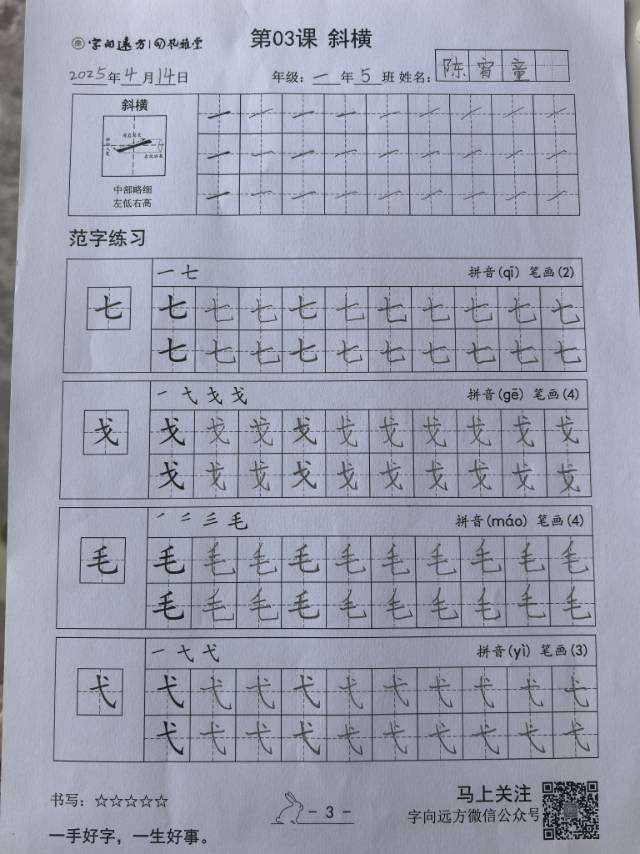 字向远方
第03课 斜横
2025年4月14日 年级：一年5班 姓名：陈宵童
斜横
中部略细
左低右高
范字练习
一 七 拼音(qī) 笔画(2)
七 七 七 七 七 七 七 七 七 七 七
七 七 七 七 七 七 七 七 七 七
一 弋 戈 戈 拼音(gē) 笔画(4)
戈 戈 戈 戈 戈 戈 戈 戈 戈 戈 戈
戈 戈 戈 戈 戈 戈 戈 戈 戈 戈
拼音(máo) 笔画(4)
毛 毛 毛 毛 毛 毛 毛 毛 毛 毛 毛
毛 毛 毛 毛 毛 毛 毛 毛 毛 毛
一 弋 弋 拼音(yì) 笔画(3)
弋 弋 弋 弋 弋 弋 弋 弋 弋 弋 弋
弋 弋 弋 弋 弋 弋 弋 弋 弋 弋
书写：☆☆☆☆☆ - 3 - 马上关注
字向远方微信公众号
一手好字，一生好事。